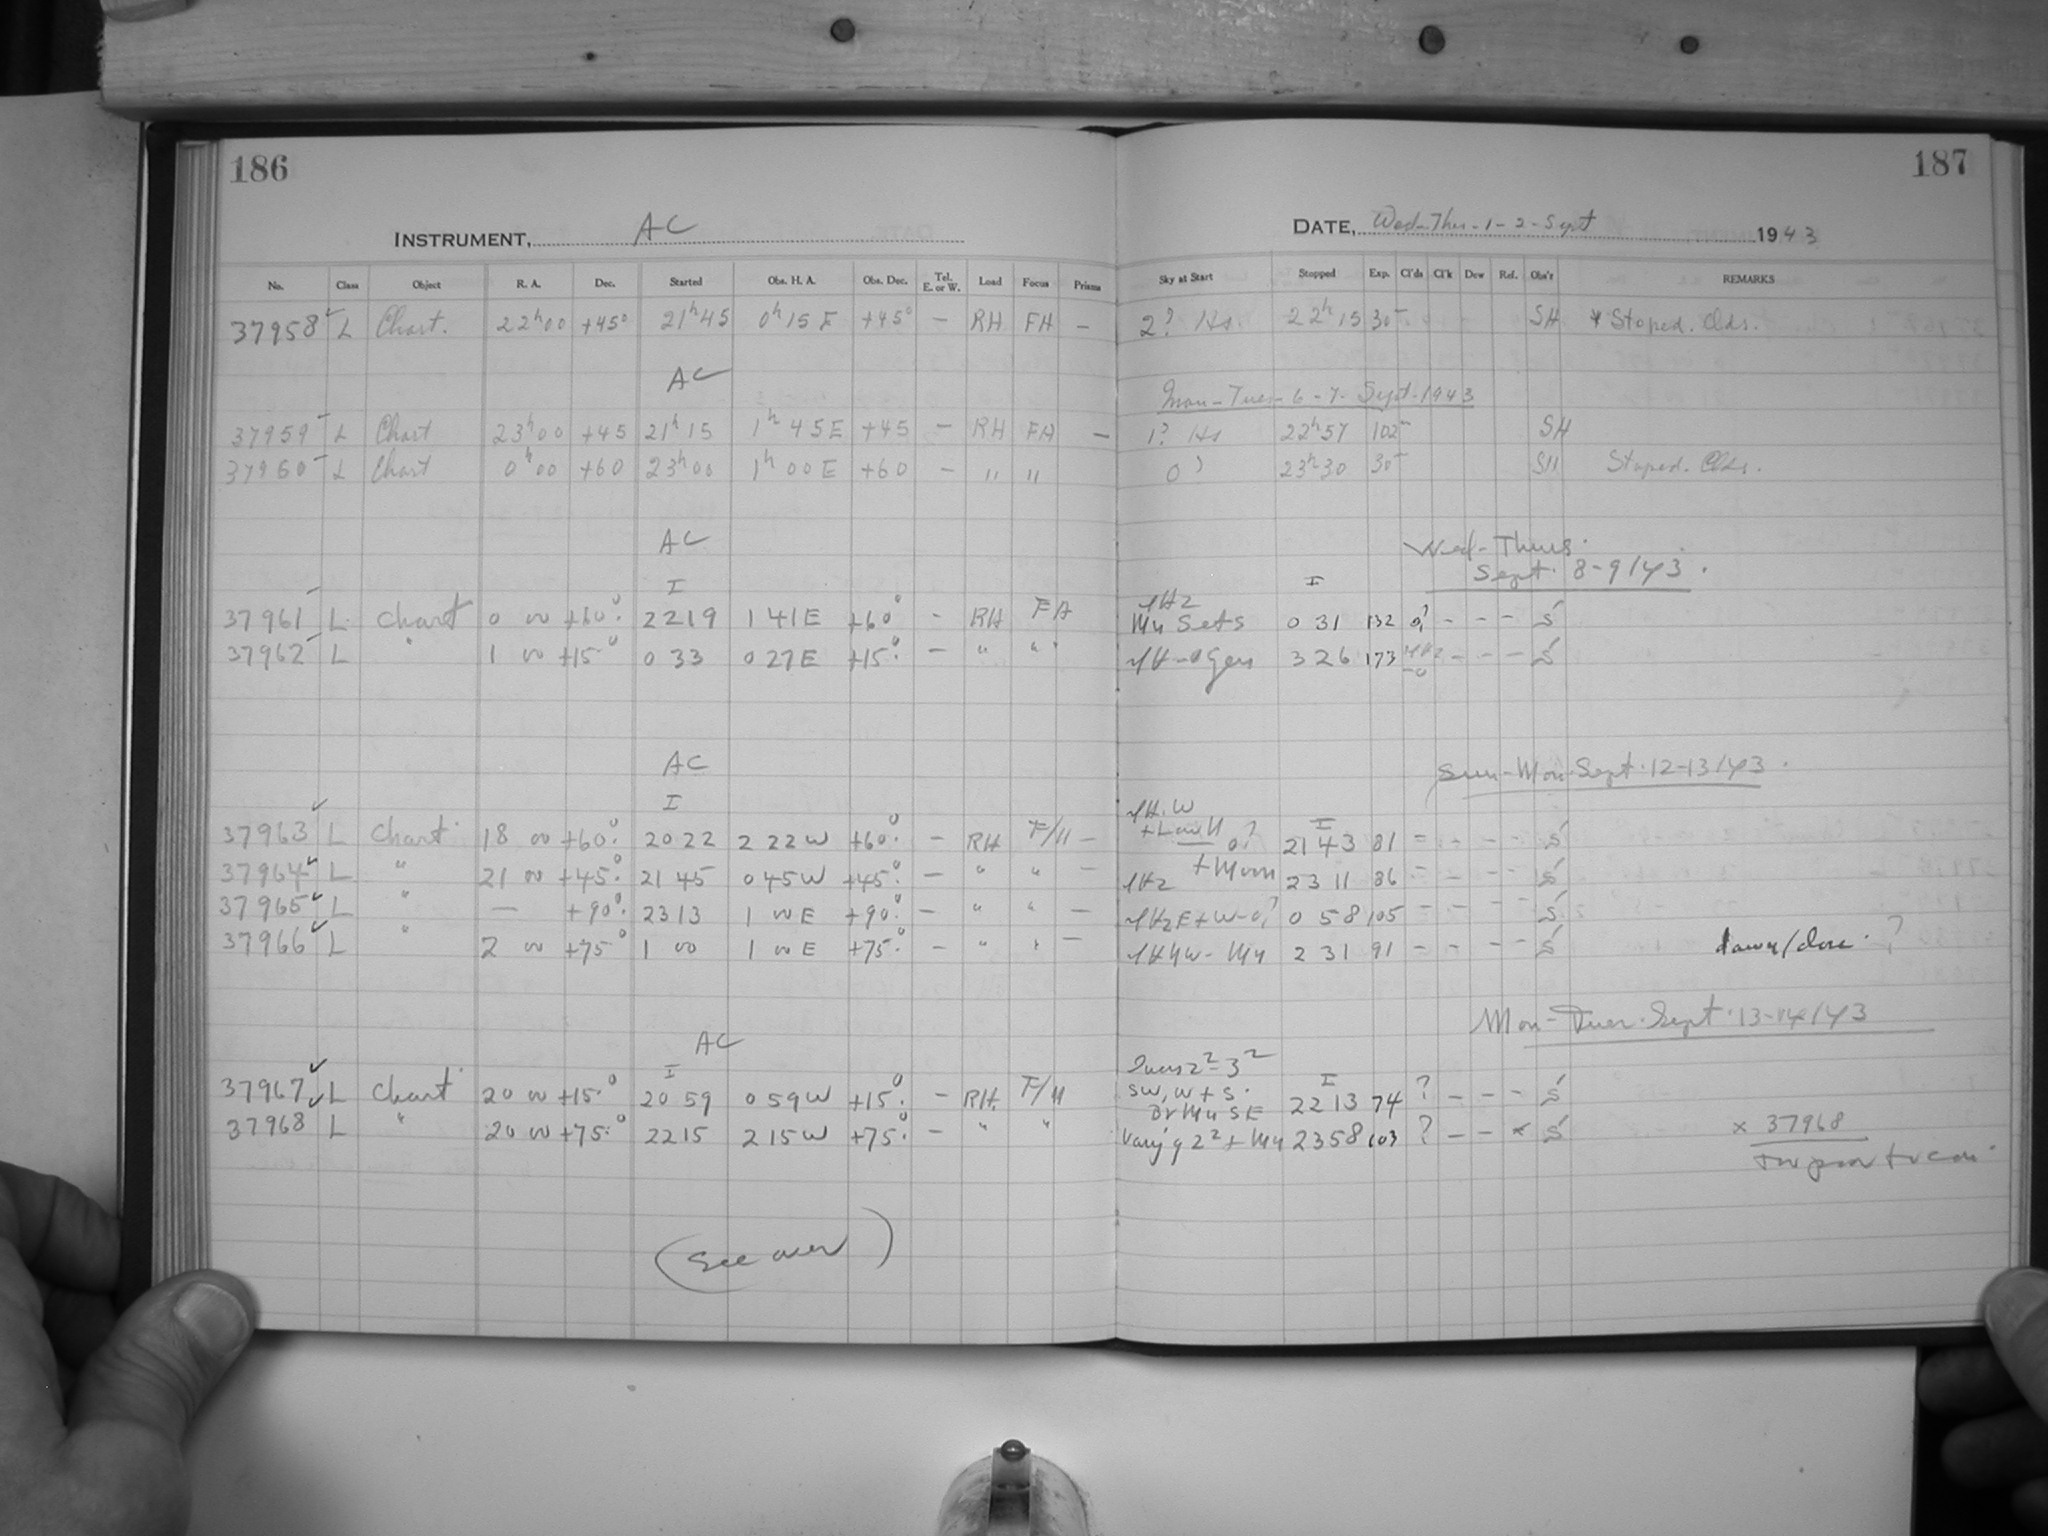 186
187
INSTRUMENT, AC
DATE, Wed-Thu-1-2-Sept 1943
No. Class Object R. A. Dec. Started Obs. H. A. Obs. Dec. Tel. E. or W. Load Focus Prisms Sky at Start Stopped Exp. Cl'ds Cl'k Dew Ref. Obs'r REMARKS
37958 L Chart. 22h00 +45° 21h45 0h15 E +45° - RH FH - 2? Hs 22h15 30- SH * Stoped. Clds.
AC
Mon-Tues-6-7-Sept-1943
37959 L Chart 23h00 +45 21h15 1h45E +45 - RH FH - 1? Hs 22h57 102- SH
37960 L Chart 0h00 +60 23h00 1h00E +60 - " " 0? 23h30 30- SH Stoped. Clds.
AC
Wed-Thurs.
Sept. 8-9/43.
I I
37961 L Chart 0 00 +60° 2219 1 41E +60° - RH FH Sets 0 31 132 0? - - - S
37962 L " 1 00 +15° 0 33 0 27E +15° - " " 3 26 173 - - - S
AC
Sun-Mon-Sept.12-13/43.
I I
37963 L Chart 18 00 +60° 2022 2 22W +60° - RH F/H - 0? 2143 81 - - - - S
37964 L " 21 00 +45° 2145 0 45W +45° - " " - + Moon 2311 86 - - - - S
37965 L " — +90° 2313 1 00E +90° - " " - 0 58 105 - - - - S
37966 L " 2 00 +75° 1 00 1 00E +75° - " " - 2 31 91 - - - - S ?
Mon-Tues.Sept.13-14/43
AC
I I
37967 L Chart 20 00 +15° 2059 0 59W +15° - RH F/H SW, W + S. 2213 74 ? - - - S
37968 L " 20 00 +75° 2215 2 15W +75° - " " 2358 103 ? - - x S x 37968
(See over)